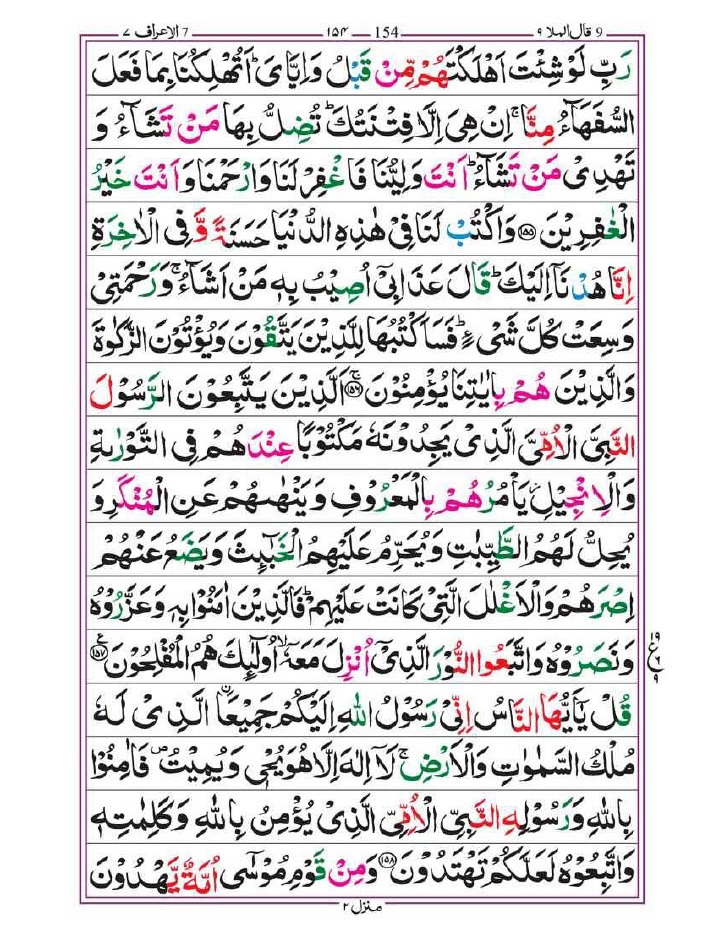 ٩ قال الملا 9 154 ١٥٤ 7 الاعراف ٧
رَبِّ لَوْ شِئْتَ اَهْلَكْتَهُمْ مِّنْ قَبْلُ وَاِيَّایَ ؕ اَتُهْلِكُنَا بِمَا فَعَلَ
السُّفَهَآءُ مِنَّا ۚ اِنْ هِیَ اِلَّا فِتْنَتُكَ ؕ تُضِلُّ بِهَا مَنْ تَشَآءُ وَ
تَهْدِیْ مَنْ تَشَآءُ ؕ اَنْتَ وَلِیُّنَا فَاغْفِرْ لَنَا وَارْحَمْنَا وَاَنْتَ خَیْرُ
الْغٰفِرِیْنَ ۝۱۵۵ وَاكْتُبْ لَنَا فِیْ هٰذِهِ الدُّنْیَا حَسَنَةً وَّفِی الْاٰخِرَةِ
اِنَّا هُدْنَاۤ اِلَیْكَ ؕ قَالَ عَذَابِیْۤ اُصِیْبُ بِهٖ مَنْ اَشَآءُ ۚ وَرَحْمَتِیْ
وَسِعَتْ كُلَّ شَیْءٍ ؕ فَسَاَكْتُبُهَا لِلَّذِیْنَ یَتَّقُوْنَ وَیُؤْتُوْنَ الزَّكٰوةَ
وَالَّذِیْنَ هُمْ بِاٰیٰتِنَا یُؤْمِنُوْنَ ۝۱۵۶ۚ اَلَّذِیْنَ یَتَّبِعُوْنَ الرَّسُوْلَ
النَّبِیَّ الْاُمِّیَّ الَّذِیْ یَجِدُوْنَهٗ مَكْتُوْبًا عِنْدَهُمْ فِی التَّوْرٰىةِ
وَالْاِنْجِیْلِ ؗ یَاْمُرُهُمْ بِالْمَعْرُوْفِ وَیَنْهٰىهُمْ عَنِ الْمُنْكَرِ وَ
یُحِلُّ لَهُمُ الطَّیِّبٰتِ وَیُحَرِّمُ عَلَیْهِمُ الْخَبٰٓىِٕثَ وَیَضَعُ عَنْهُمْ
اِصْرَهُمْ وَالْاَغْلٰلَ الَّتِیْ كَانَتْ عَلَیْهِمْ ؕ فَالَّذِیْنَ اٰمَنُوْا بِهٖ وَعَزَّرُوْهُ
وَنَصَرُوْهُ وَاتَّبَعُوا النُّوْرَ الَّذِیْۤ اُنْزِلَ مَعَهٗۤ ۙ اُولٰٓىِٕكَ هُمُ الْمُفْلِحُوْنَ ۝۱۵۷ۧ
۱۹ ع ۹
قُلْ یٰۤاَیُّهَا النَّاسُ اِنِّیْ رَسُوْلُ اللّٰهِ اِلَیْكُمْ جَمِیْعَا ۨ الَّذِیْ لَهٗ
مُلْكُ السَّمٰوٰتِ وَالْاَرْضِ ۚ لَاۤ اِلٰهَ اِلَّا هُوَ یُحْیٖ وَیُمِیْتُ ۪ فَاٰمِنُوْا
بِاللّٰهِ وَرَسُوْلِهِ النَّبِیِّ الْاُمِّیِّ الَّذِیْ یُؤْمِنُ بِاللّٰهِ وَكَلِمٰتِهٖ
وَاتَّبِعُوْهُ لَعَلَّكُمْ تَهْتَدُوْنَ ۝۱۵۸ وَمِنْ قَوْمِ مُوْسٰۤی اُمَّةٌ یَّهْدُوْنَ
منزل ۲